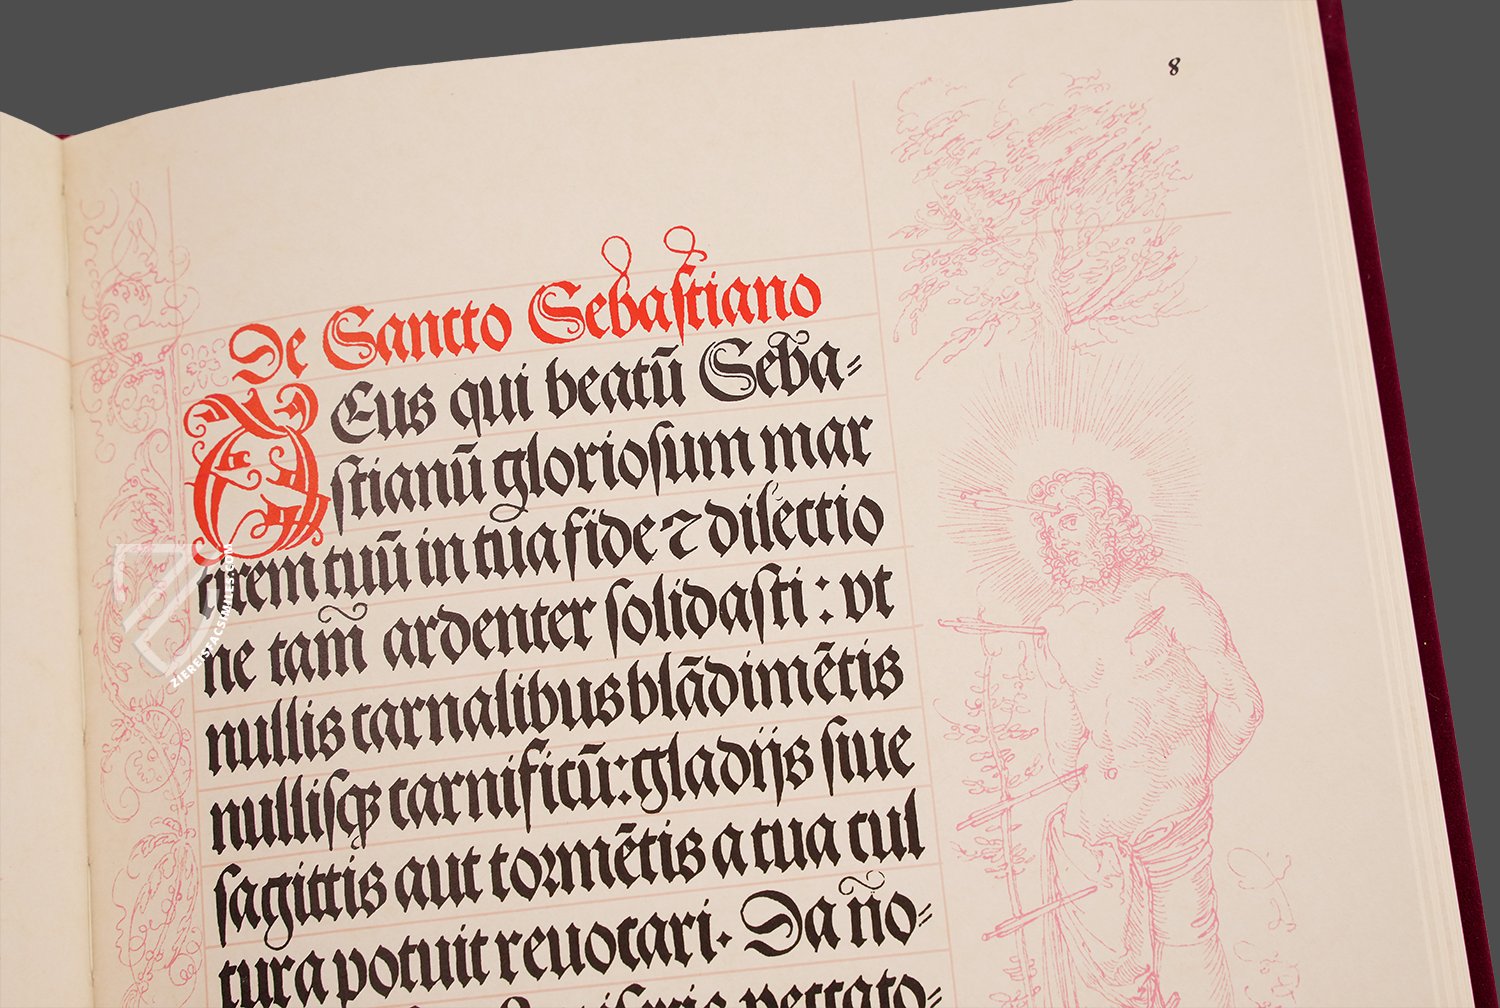 8
De Sancto Sebastiano
DEus qui beatū Seba-
stianū gloriosum mar
tirem tuū in tua fide ⁊ dilectio
ne tam̄ ardenter solidasti: vt
nullis carnalibus blādimētis
nullisqꝫ carnificū: gladijs siue
sagittis aut tormētis a tua cul
tura potuit reuocari. Da no-
peccato-
ZIEREIS FACSIMILES.COM